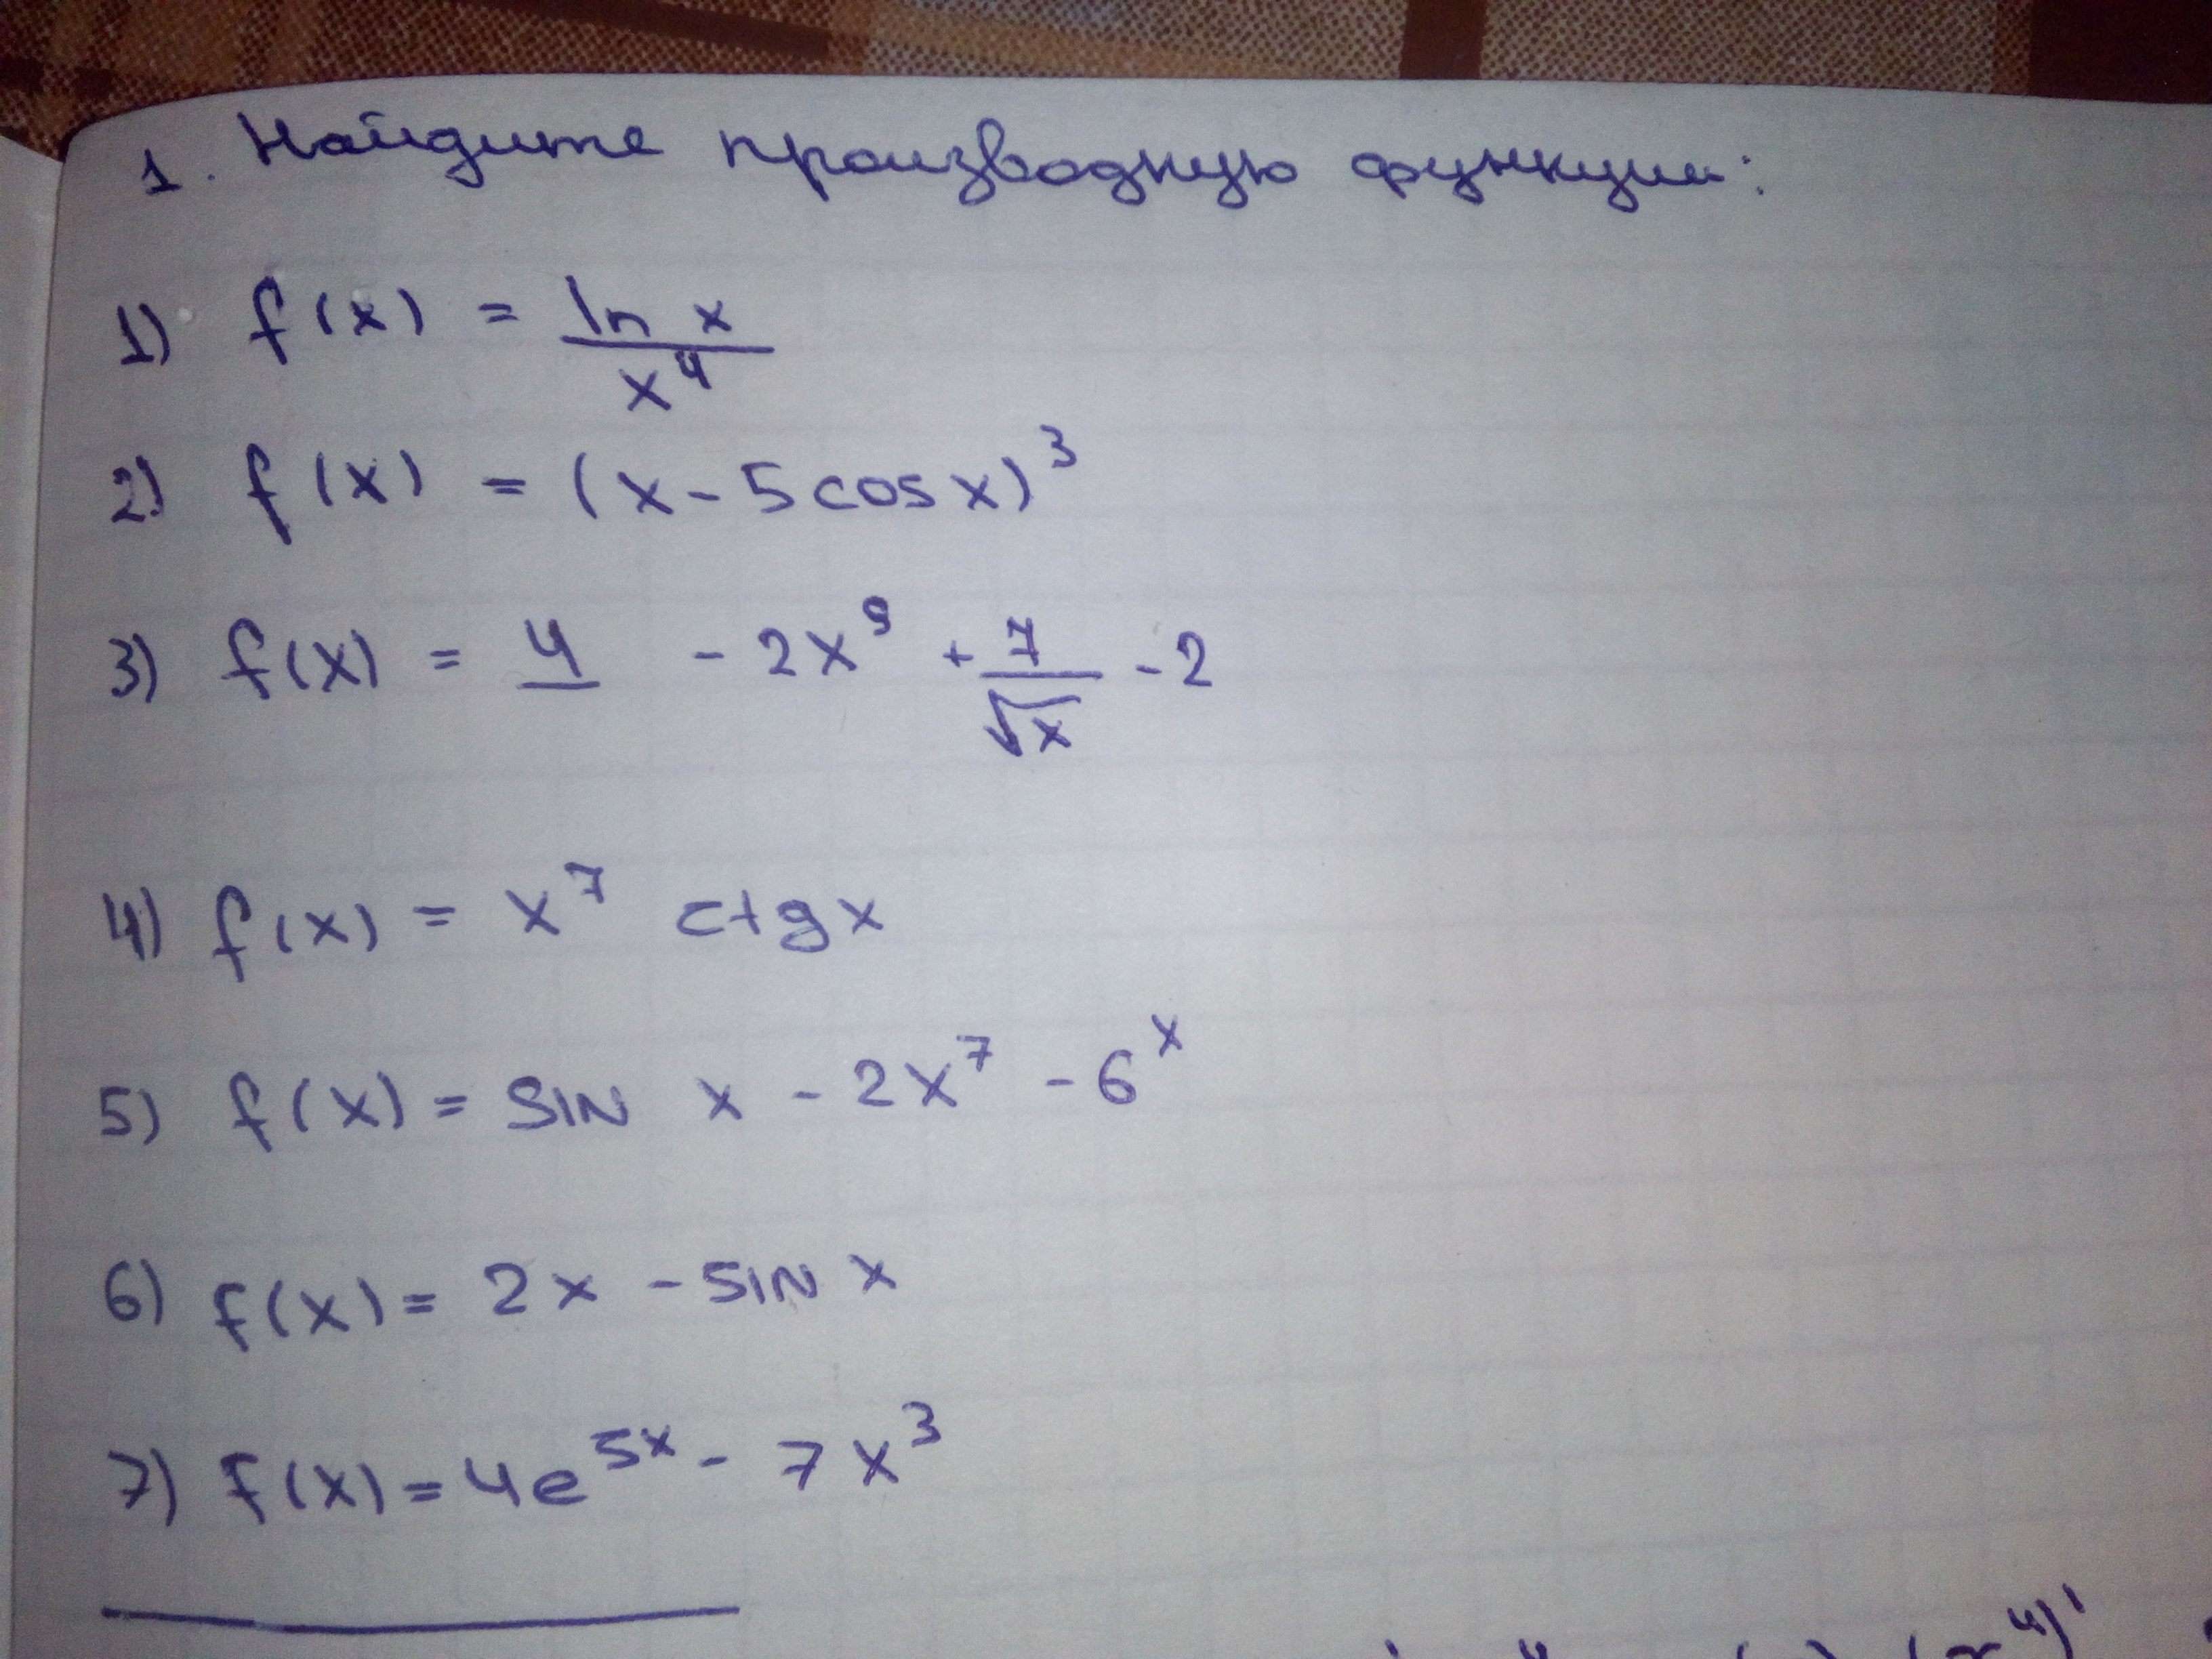 1. Найдите производную функции:
1) f(x) = ln x / x⁴
2) f(x) = (x - 5cosx)³
3) f(x) = 4/ - 2x⁹ + 7/√x - 2
4) f(x) = x⁷ ctgx
5) f(x) = sin x - 2x⁷ - 6ˣ
6) f(x) = 2x - sin x
7) f(x) = 4e⁵ˣ - 7x³